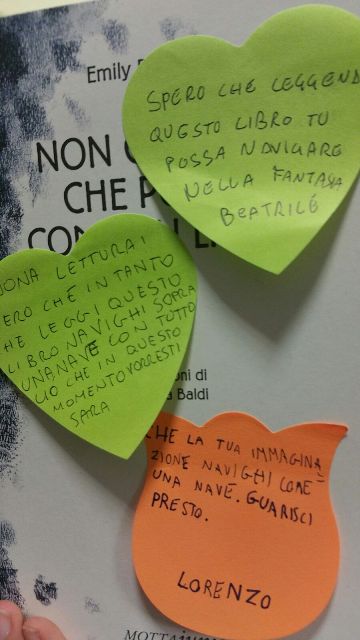 Emily
NON
CHE PO
CON
SPERO CHE LEGGENDO
QUESTO LIBRO TU
POSSA NAVIGARE
NELLA FANTASIA
BEATRICE
ONA LETTURA!
ERO CHE IN TANTO
HE LEGGI QUESTO
LIBRO NAVIGHI SOPRA
UNA NAVE CON TUTTO
CIO CHE IN QUESTO
MOMENTO VORRESTI
SARA
oni di
Baldi
CHE LA TUA IMMAGINA
ZIONE NAVIGHI COME
UNA NAVE. GUARISCI
PRESTO.
LORENZO
MOTTAjunior